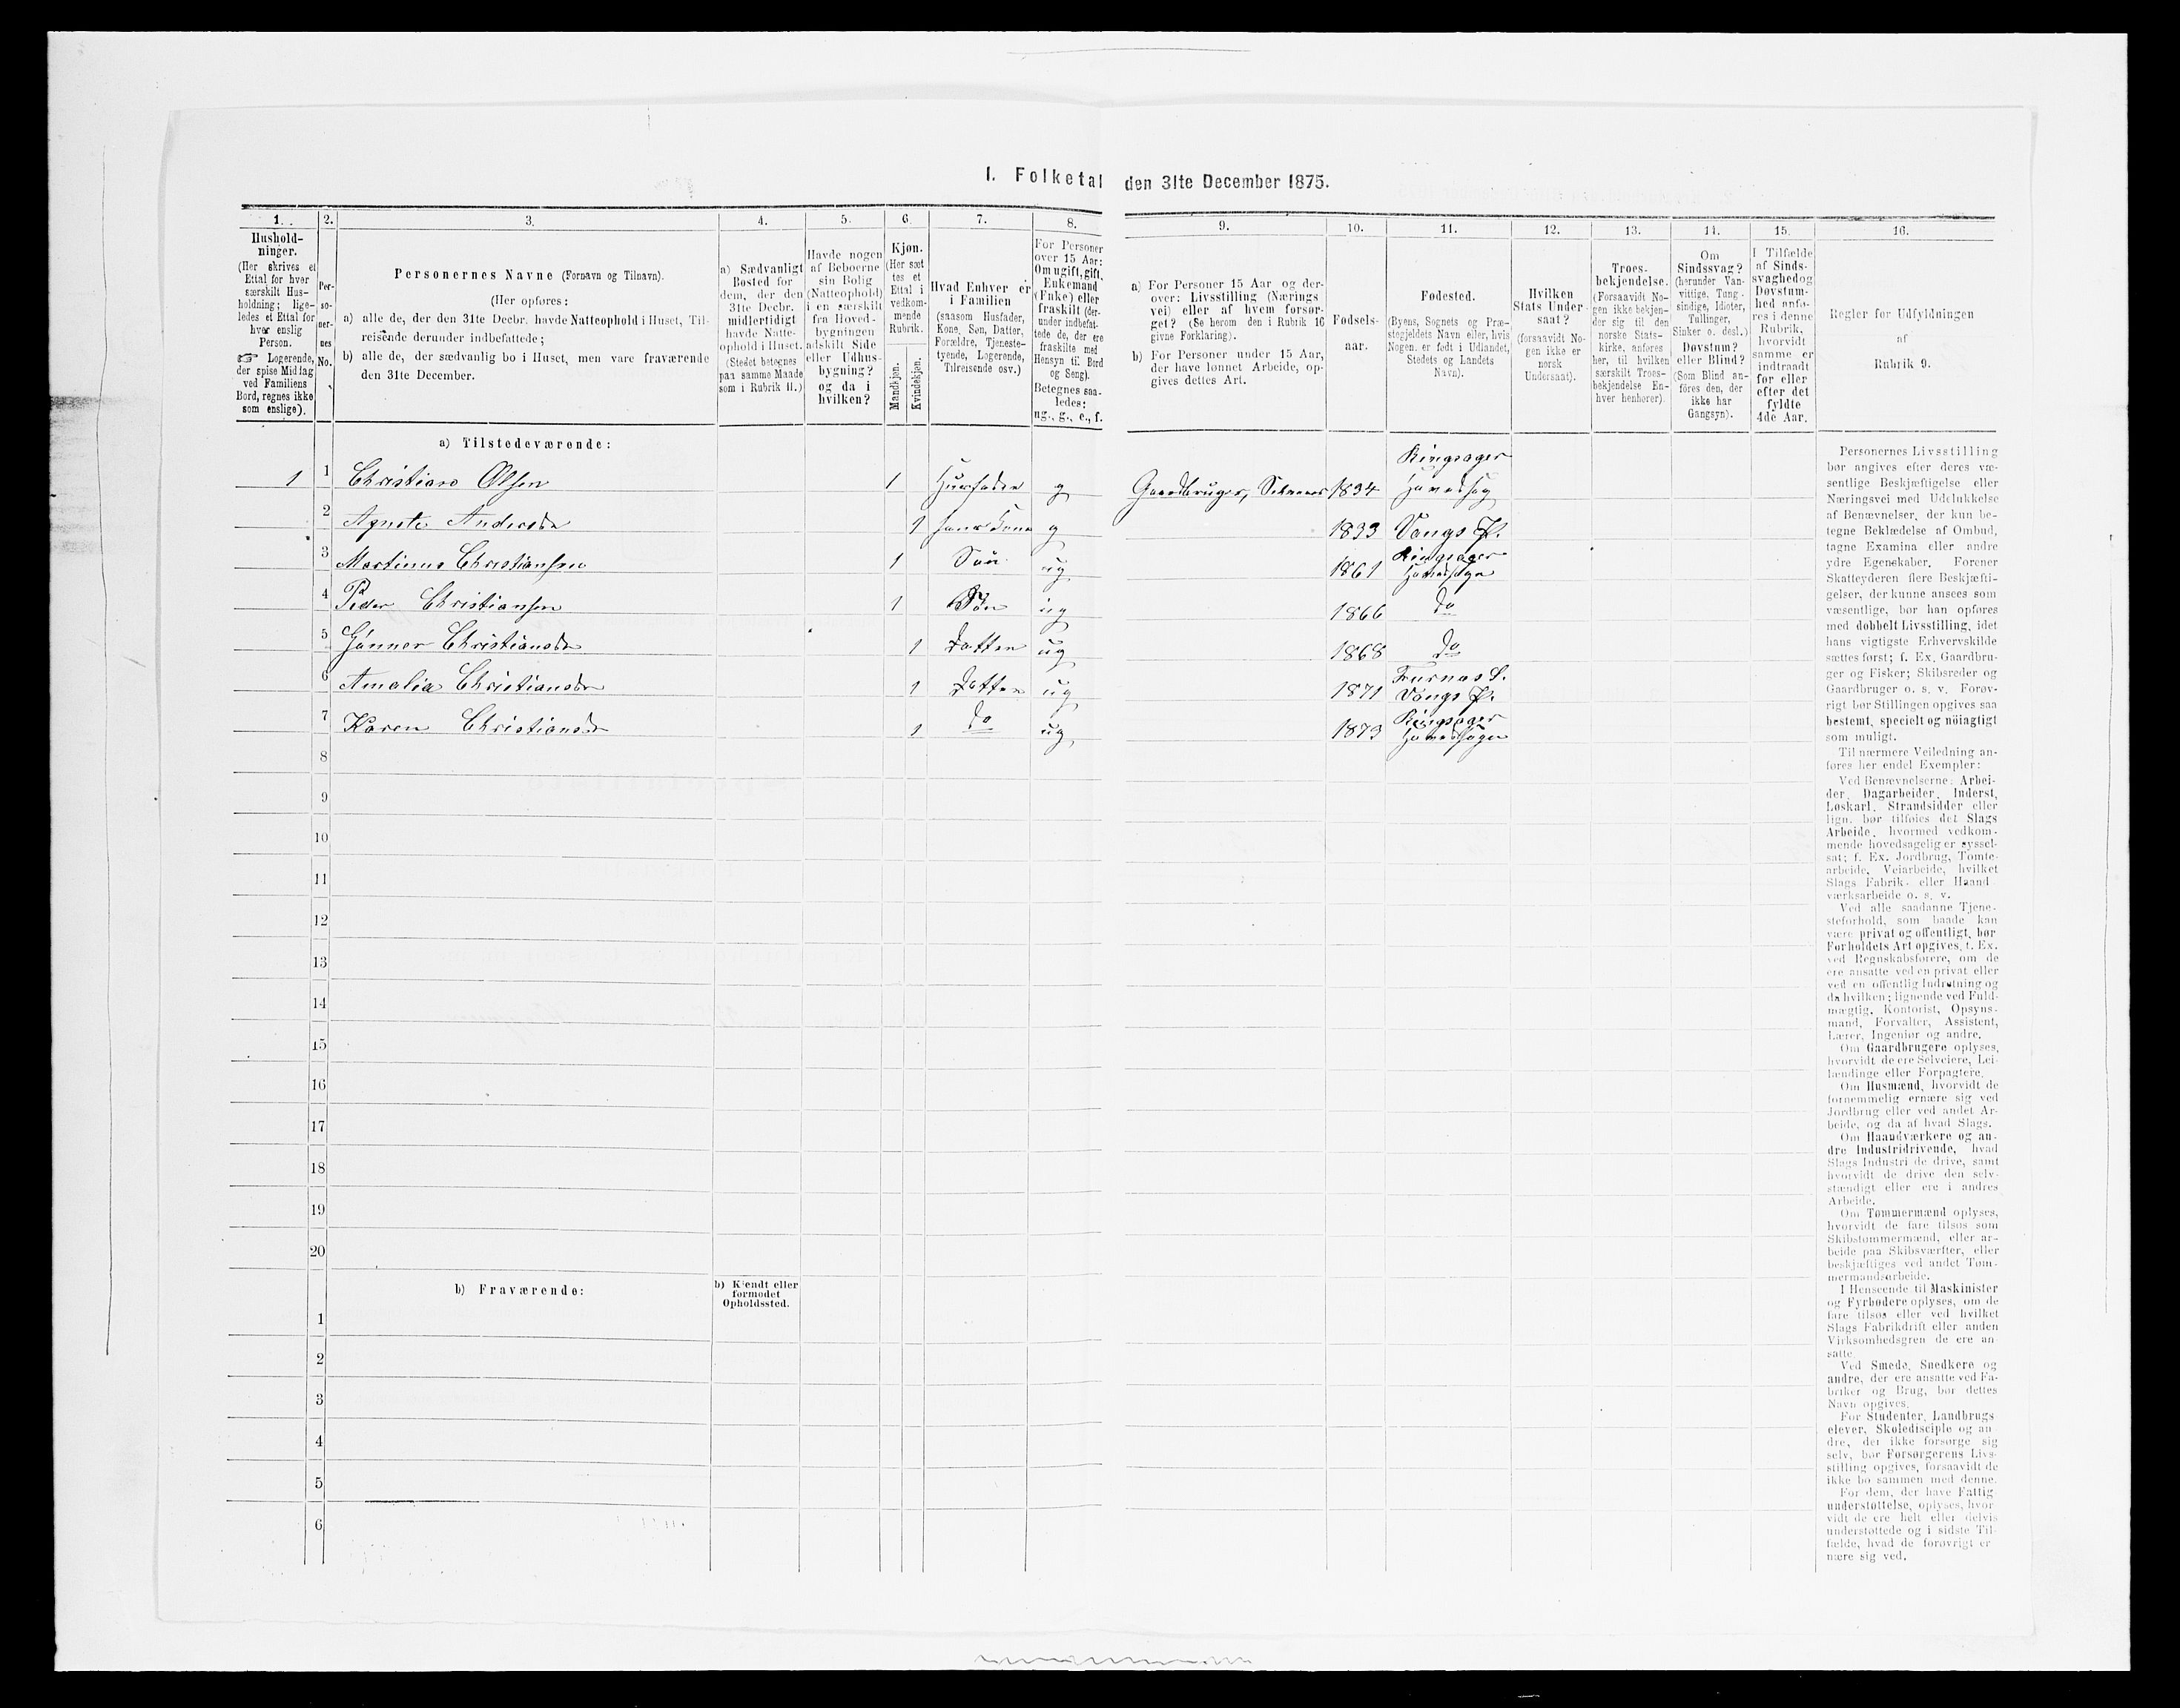 I. Folketal den 31te December 1875.
1. 2. 3. 4. 5. 6. 7. 8. 9. 10. 11. 12. 13. 14. 15. 16.
Hushold-
ninger.
(Her skrives et
Ettal for hver
særskilt Hus-
holdning; lige-
ledes et Ettal for
hver enslig
Person.
☞ Logerende,
der spise Middag
ved Familiens
Bord, regnes ikke
som enslige).
Per-
so-
ner-
nes
No.
Personernes Navne (Fornavn og Tilnavn).
(Her opføres:
a) alle de, der den 31te Decbr. havde Natteophold i Huset, Til-
reisende derunder indbefattede;
b) alle de, der sædvanlig bo i Huset, men vare fraværende
den 31te December.
a) Sædvanligt
Bosted for
dem, der den
31te Decbr.
midlertidigt
havde Natte-
ophold i Huset.
(Stedet betegnes
paa samme Maade
som i Rubrik 11.)
Havde nogen
af Beboerne
sin Bolig
(Natteophold)
i en særskilt
fra Hoved-
bygningen
adskilt Side
eller Udhus-
bygning?
og da i
hvilken?
Kjøn.
(Her sæt
tes et
Ettal i
vedkom-
mende
Rubrik.
Mandkjøn.
Kvindekjøn.
Hvad Enhver er
i Familien
(saasom Husfader,
Kone, Søn, Datter,
Forældre, Tjeneste-
tyende, Logerende,
Tilreisende osv.)
For Personer
over 15 Aar:
Om ugift, gift,
Enkemand
(Enke) eller
fraskilt (der-
under indbefat-
tede de, der ere
fraskilte med
Hensyn til Bord
og Seng).
Betegnes saa-
ledes:
ug., g., e., f.
a) For Personer 15 Aar og der-
over: Livsstilling (Nærings
vei) eller af hvem forsør-
get? (Se herom den i Rubrik 16
givne Forklaring).
b) For Personer under 15 Aar,
der have lønnet Arbeide, op-
gives dettes Art.
Fødsels-
aar.
Fødested.
(Byens, Sognets og Præ-
stegjeldets Navn eller, hvis
Nogen er født i Udlandet,
Stedets og Landets
Navn).
Hvilken
Stats Under-
saat?
(forsaavidt No-
gen ikke er
norsk
Undersaat).
Troes-
bekjendelse.
(Forsaavidt No-
gen ikke bekjen-
der sig til den
norske Stats-
kirke, anføres
her, til hvilken
særskilt Troes-
bekjendelse En-
hver henhører).
Om
Sindssvag?
(herunder Van-
vittige, Tung-
sindige, Idioter,
Tullinger,
Sinker o. desl.)
Døvstum?
eller Blind?
(Som Blind an-
föres den, der
ikke har
Gangsyn).
I Tilfælde
af Sinds-
svaghed og
Døvstum-
hed anfø-
res i denne
Rubrik,
hvorvidt
samme er
indtraadt
før eller
efter det
fyldte
4de Aar.
Regler for Udfyldningen
af
Rubrik 9.
a) Tilstedeværende:
1 1 Christian Olsen 1 Husfader g Gaardbruger, Selveier 1834 Ringsager
2 Agnete Andersdr 1 hans Kone g 1833 Vangs P.
3 Martinus Christiansen 1 Søn ug 1861 Ringsager
4 Peder Christiansen 1 Søn ug 1866 do
5 Gunner Christiansdr 1 Datter ug 1868 do
6 Amalia Christiansdr 1 Datter ug 1871 Furnes S.
Vangs P.
7 Karen Christiansdr 1 do ug 1873 Ringsager
8
9
10
11
12
13
14
15
16
17
18
19
20
b) Fraværende:
b) Kjendt eller
formodet
Opholdssted.
1
2
3
4
5
6
Personernes Livsstilling
bør angives efter deres væ-
sentlige Beskjæftigelse eller
Næringsvei med Udelukkelse
af Benævnelser, der kun be-
tegne Beklædelse af Ombud,
tagne Examina eller andre
ydre Egenskaber. Forener
Skatteyderen flere Beskjæfti-
gelser, der kunne ansees som
væsentlige, bør han opføres
med dobbelt Livsstilling, idet
hans vigtigste Erhvervskilde
sættes først; f. Ex. Gaardbru-
ger og Fisker; Skibsreder og
Gaardbruger o. s. v. Forøv-
rigt bør Stillingen opgives saa
bestemt, specielt og nöiagtigt
som muligt.
Til nærmere Veiledning an-
føres her endel Exempler:
Ved Benævnelserne: Arbei-
der, Dagarbeider, Inderst,
Løskarl, Strandsidder eller
lign. bør tilføies det Slags
Arbeide, hvormed vedkom-
mende hovedsagelig er syssel-
sat; f. Ex. Jordbrug, Tomte-
arbeide, Veiarbeide, hvilket
Slags Fabrik- eller Haand-
værksarbeide o. s. v.
Ved alle saadanne Tjene-
steforhold, som baade kan
være privat og offentligt, bør
Forholdets Art opgives, f. Ex.
ved Regnskabsførere, om de
ere ansatte ved en privat eller
ved en offentlig Indretning og
da hvilken; lignende ved Fuld-
mægtig, Kontorist, Opsyns-
mand, Forvalter, Assistent,
Lærer, Ingeniør og andre.
Om Gaardbrugere oplyses,
hvorvidt de ere Selveiere, Lei-
lændinge eller Forpagtere.
Om Husmænd, hvorvidt de
fornemmelig ernære sig ved
Jordbrug eller ved andet Ar-
beide, og da af hvad Slags.
Om Haandværkere og an-
dre Industridrivende, hvad
Slags Industri de drive, samt
hvorvidt de drive den selv-
stændigt eller ere i andres
Arbeide.
Om Tømmermænd oplyses,
hvorvidt de fare tilsøs som
Skibstømmermænd, eller ar-
beide paa Skibsværfter, eller
beskjæftiges ved andet Tøm-
mermandsarbeide.
I Henseende til Maskinister
og Fyrbødere oplyses, om de
fare tilsøs eller ved hvilket
Slags Fabrikdrift eller anden
Virksomhedsgren de ere an-
satte.
Ved Smede, Snedkere og
andre, der ere ansatte ved Fa-
briker og Brug, bør dettes
Navn opgives.
For Studenter, Landbrugs
elever, Skoledisciple og an
dre, der ikke forsørge sig
selv, bør Forsørgerens Livs-
stilling opgives, forsaavidt de
ikke bo sammen med denne.
For dem, der have Fattig
understøttelse, oplyses, hvor
vidt de ere helt eller delvis
understøttede og i sidste Til-
fælde, hvad de forøvrigt er
nære sig ved.